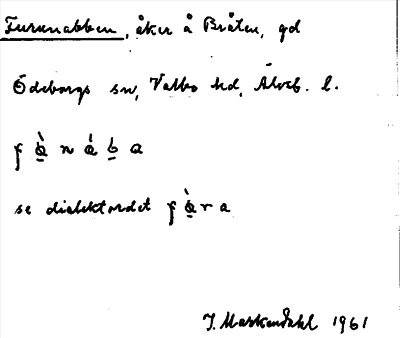 Furunabben, åker å Bråten, gd
Ödeborgs sn, Valbo hd, Älvsb. l.
se dialektordet
J. Markendahl 1961